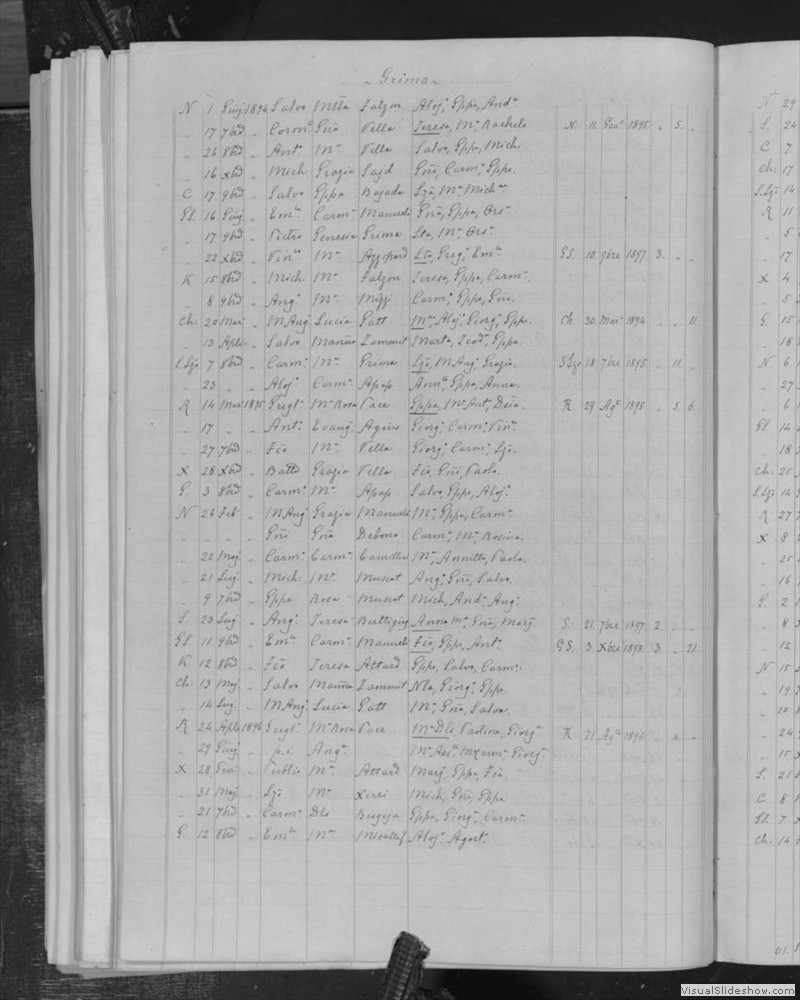 - Grima -
N 1 Giuj 1894 Salvo Mtta Falzon Aloj: Gppa, And:
" 17 7brd " Carm: Gnã Vella Teresa, M: Rachele N. 11 Gen: 1895 " 5 "
" 26 8brd " Ant: M: Vella Salvo, Gppe, Mich.
" 16 Xbrd " Mich Grazia Sajd Gnĩ, Carm: Gppe.
C 17 9brd " Salvo Gppa Bajada Lzõ, M: Mich:
GS. 16 Giuj " Em: Carm: Manuele Gnã, Gppa, Ors:
" 17 9brd " Pietro Genesia Grima M: Ors:
" 22 Xbrd " Vin: M: Azzopard Greg: Em: GS. 10. 9bre 1897 3 " "
K 15 8brd " Mich M: Falzon Teresa, Gppa, Carm:
" 8 9brd " Ang: M: Mizzi Carm: Gppa, Gnĩ.
Ch: 20 Mar: " M Ang: Lucia Gatt M: Aloj: Giorg: Gppa. Ch. 30. Mar: 1894 " " 11
" 13 Aple " Salvo Marña Zammit Marta, Teod: Gppa.
S.Lzo 7 8brd " Carm: M: Grima Lzõ, M Ang: Grazia. S.Lzo 18 7bre 1895 " 11 "
" 23 " " Aloj: Carm: Apap Ann: Gppa, Anna.
R 14 Mar: 1895 Gugl: M: Rosa Pace Gppa, M: Ant: R 29 Ag: 1895 " 5 6
" 17 " " Ant: Evang: Agius Giorg: Carm: Vin:
" 27 7brd " Fcõ M: Vella Giorg: Carm: Lzõ.
X 28 Xbrd " Batta Grazia Vella Fcõ, Gnĩ, Paolo.
G. 3 8brd " Carm: M: Apap Salvo, Gppe, Aloj:
N 26 Feb: " M Ang: Grazia Manuele M: Gppa, Carm:
" " " " Gnĩ Gnã Debono Carm: M: Rosina
" 22 Maj " Carm: Carm: Camilleri M: Annetta, Paola.
" 21 Luj " Mich: M: Muscat Ang: Gnĩ, Salvo.
" 9 7brd " Gppe Rosa Muscat Mich, And: Ang:
S. 23 Luj " Ang: Teresa Buttigieg Anna M: Gnã, Marj: S. 21. 7bre 1897 2 " "
GS. 11 9brd " Em: Carm: Manuele Fcõ, Gppe, Ant: GS. 3. Xbre 1898. 3 " 21
K 12 8brd " Fcõ Teresa Attard Gppe, Salvo, Carm:
Ch: 13 Maj " Salvo Marña Zammit Nla, Giorg: Gppe.
" 14 Luj " M Ang: Lucia Gatt M: Gnã, Salva.
R 24 Aple 1896 Gugl: M: Rosa Pace M: Dls, Paolina, Giorg: R 21. Ag: 1896 " 4 "
" 29 Giuj " p.i. Ang: M: Ass: M Carm: Giorg:
X 28 Gen: " Publio M: Attard Marj: Gppa, Fcã.
" 31 Maj " Lzõ M: Xerri Mich, Gnĩ, Gppe
" 21 7brd " Carm: Dls Bugeja Gppa, Giorg: Carm:
G. 12 8brd " Em: M: Micallef Aloj: Agost:
N 29
S. 24
C 7
Ch: 17
S.Lzo 14
R 11
" 5
" 17
X 4
" 5
G. 15
" 18
N 6
" 27
" 6
GS 14
" 18
Ch: 25
S.Lzo 14
R 27
X 8
" 25
" 16
G. 2
" 8
" 12
N 15
" 19
" 24
" 15
S. 21
C 8
GS. 7
Ch: 14
VisualSlideshow.com